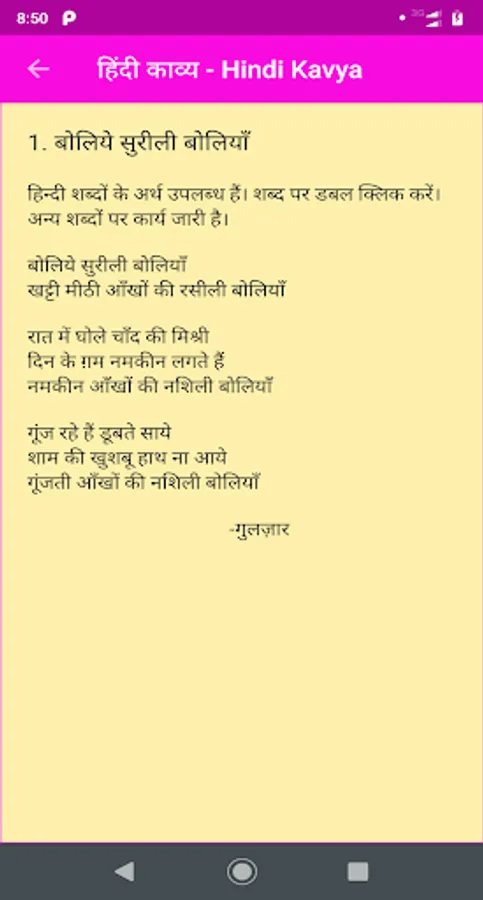 8:50
3G
हिंदी काव्य - Hindi Kavya
1. बोलिये सुरीली बोलियाँ
हिन्दी शब्दों के अर्थ उपलब्ध हैं। शब्द पर डबल क्लिक करें।
अन्य शब्दों पर कार्य जारी है।
बोलिये सुरीली बोलियाँ
खट्टी मीठी आँखों की रसीली बोलियाँ
रात में घोले चाँद की मिश्री
दिन के ग़म नमकीन लगते हैं
नमकीन आँखों की नशिली बोलियाँ
गूंज रहे हैं डूबते साये
शाम की खुशबू हाथ ना आये
गूंजती आँखों की नशिली बोलियाँ
-गुलज़ार